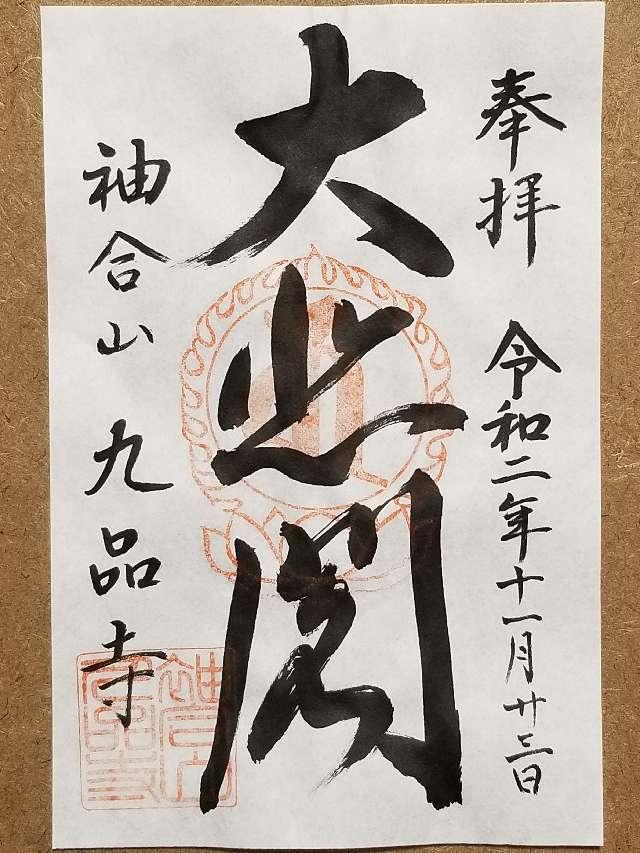 奉拝 令和二年十一月廿三日
大悲閣
袖合山 九品寺
袖合山
九品寺